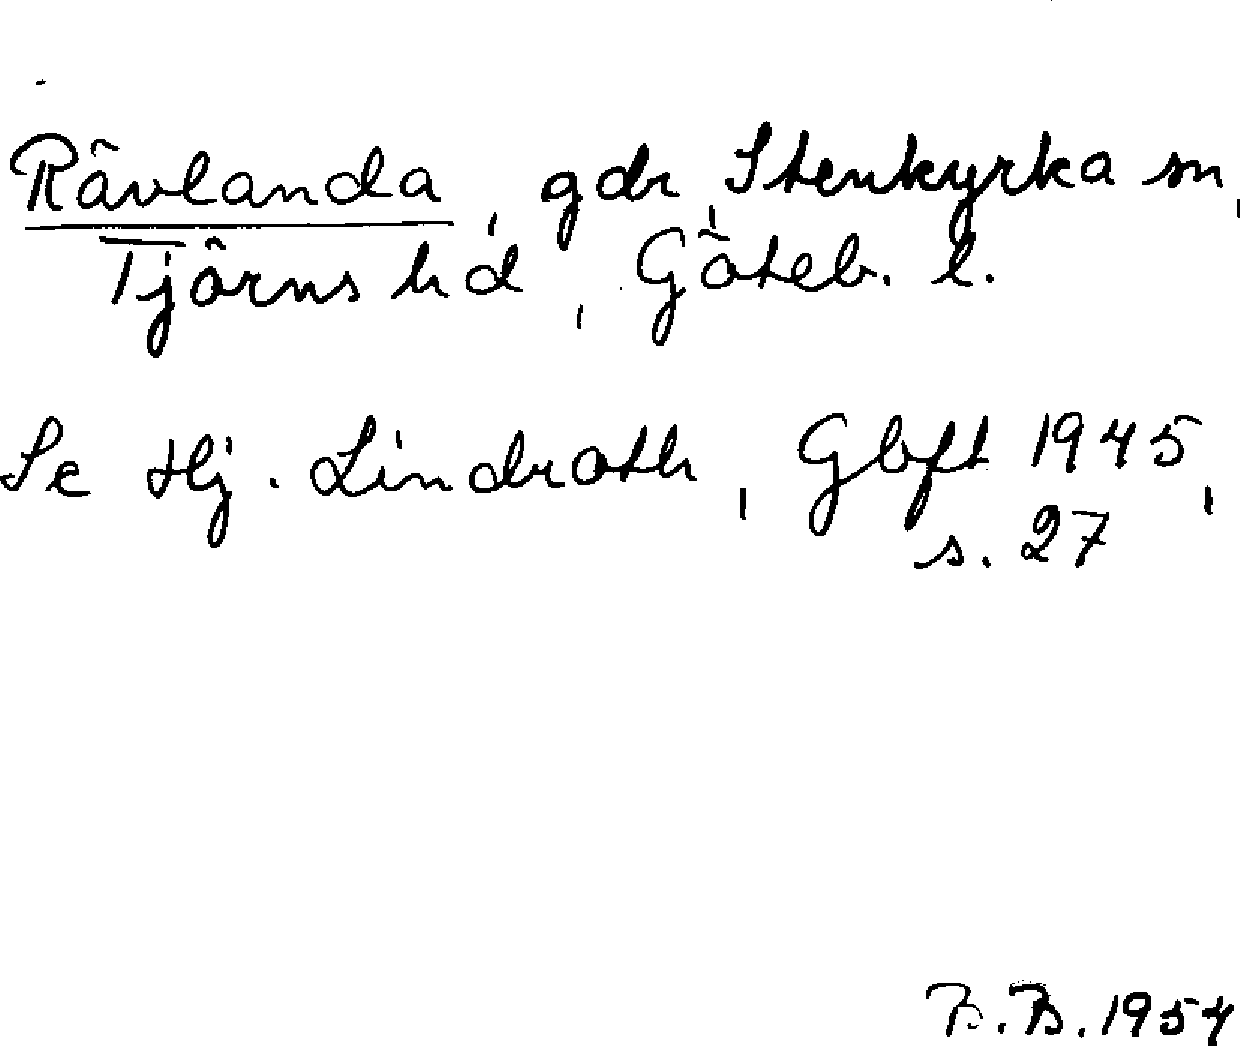 Rävlanda, gdr, Stenkyrka sn,
Tjörns hd, Göteb. l.
Se Hj. Lindroth, Gbft 1945,
s. 27
B.B. 1954